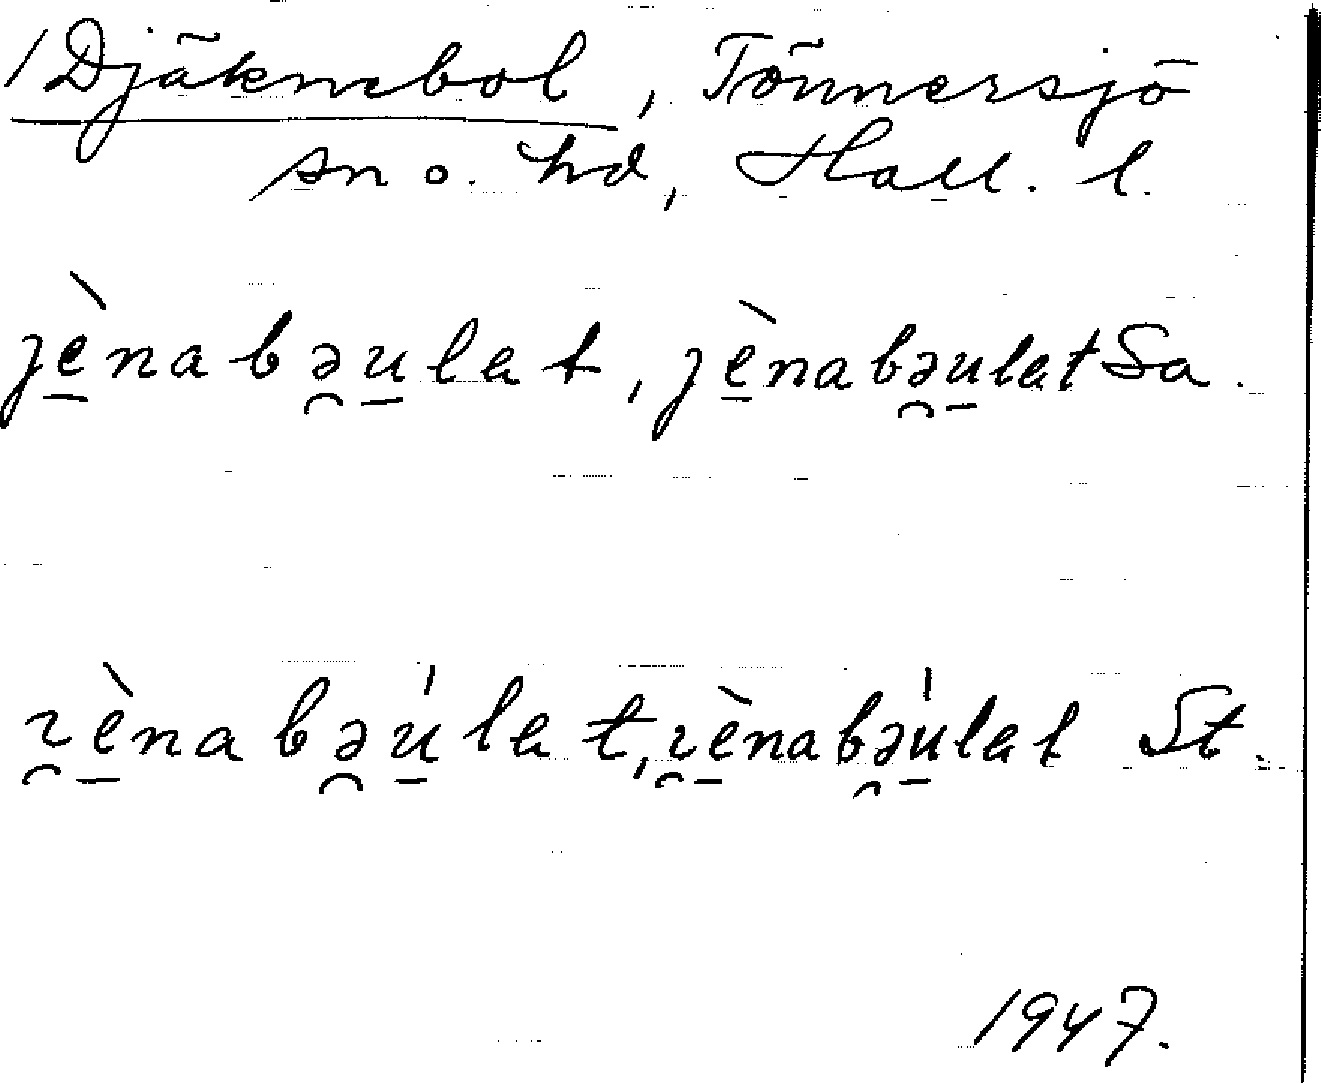 /Djäknebol, Tönnersjö
sn o. hd, Hall. l.
jènabəulat, jènabəulat Sa.
ɿènabəu̍lat, ɿènabəu̍lat St.
1947.